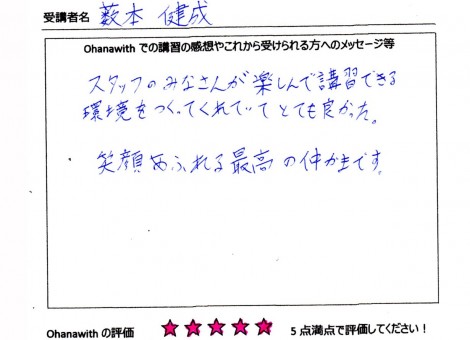 受講者名 薮本 健成
Ohanawith での講習の感想やこれから受けられる方へのメッセージ等
スタッフのみなさんが楽しんで講習できる
環境をつくってくれていてとても良かった。
笑顔あふれる最高の仲かまです。
Ohanawith の評価 ★★★★★ 5点満点で評価してください!